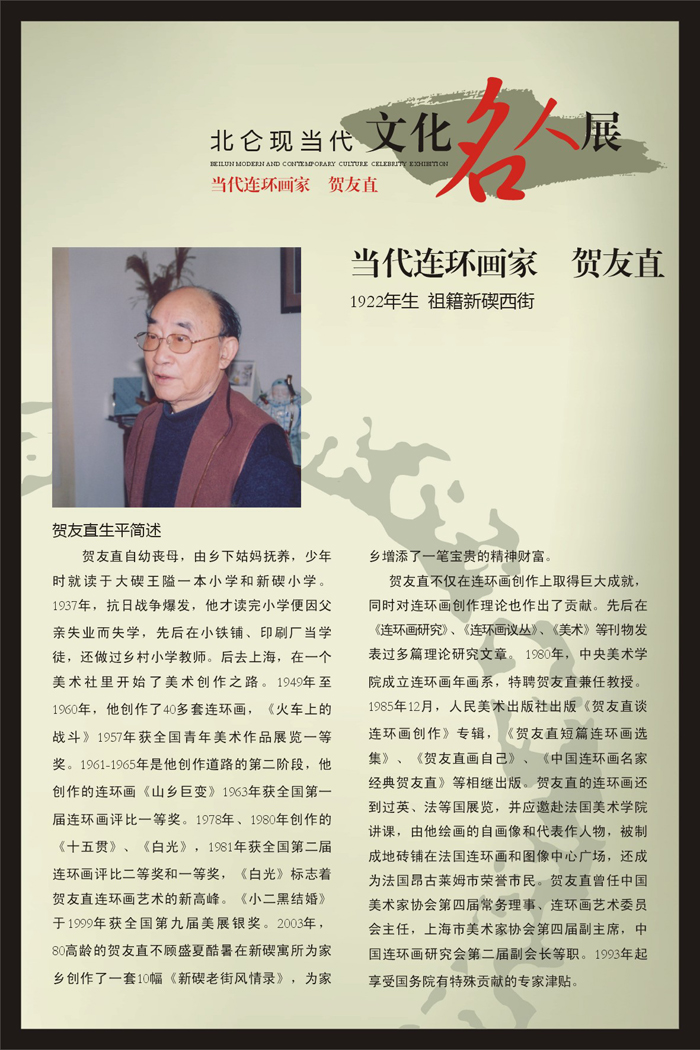 北仑现当代 文化名人展
BEILUN MODERN AND CONTEMPORARY CULTURE CELEBRITY EXHIBITION
当代连环画家 贺友直
当代连环画家 贺友直
1922年生 祖籍新碶西街
贺友直生平简述
贺友直自幼丧母，由乡下姑妈抚养，少年
时就读于大碶王隘一本小学和新碶小学。
1937年，抗日战争爆发，他才读完小学便因父
亲失业而失学，先后在小铁铺、印刷厂当学
徒，还做过乡村小学教师。后去上海，在一个
美术社里开始了美术创作之路。1949年至
1960年，他创作了40多套连环画，《火车上的
战斗》1957年获全国青年美术作品展览一等
奖。1961-1965年是他创作道路的第二阶段，他
创作的连环画《山乡巨变》1963年获全国第一
届连环画评比一等奖。1978年、1980年创作的
《十五贯》、《白光》，1981年获全国第二届
连环画评比二等奖和一等奖，《白光》标志着
贺友直连环画艺术的新高峰。《小二黑结婚》
于1999年获全国第九届美展银奖。2003年，
80高龄的贺友直不顾盛夏酷暑在新碶寓所为家
乡创作了一套10幅《新碶老街风情录》，为家
乡增添了一笔宝贵的精神财富。
贺友直不仅在连环画创作上取得巨大成就，
同时对连环画创作理论也作出了贡献。先后在
《连环画研究》、《连环画议丛》、《美术》等刊物发
表过多篇理论研究文章。1980年，中央美术学
院成立连环画年画系，特聘贺友直兼任教授。
1985年12月，人民美术出版社出版《贺友直谈
连环画创作》专辑，《贺友直短篇连环画选
集》、《贺友直画自己》、《中国连环画名家
经典贺友直》等相继出版。贺友直的连环画还
到过英、法等国展览，并应邀赴法国美术学院
讲课，由他绘画的自画像和代表作人物，被制
成地砖铺在法国连环画和图像中心广场，还成
为法国昂古莱姆市荣誉市民。贺友直曾任中国
美术家协会第四届常务理事、连环画艺术委员
会主任，上海市美术家协会第四届副主席，中
国连环画研究会第二届副会长等职。1993年起
享受国务院有特殊贡献的专家津贴。